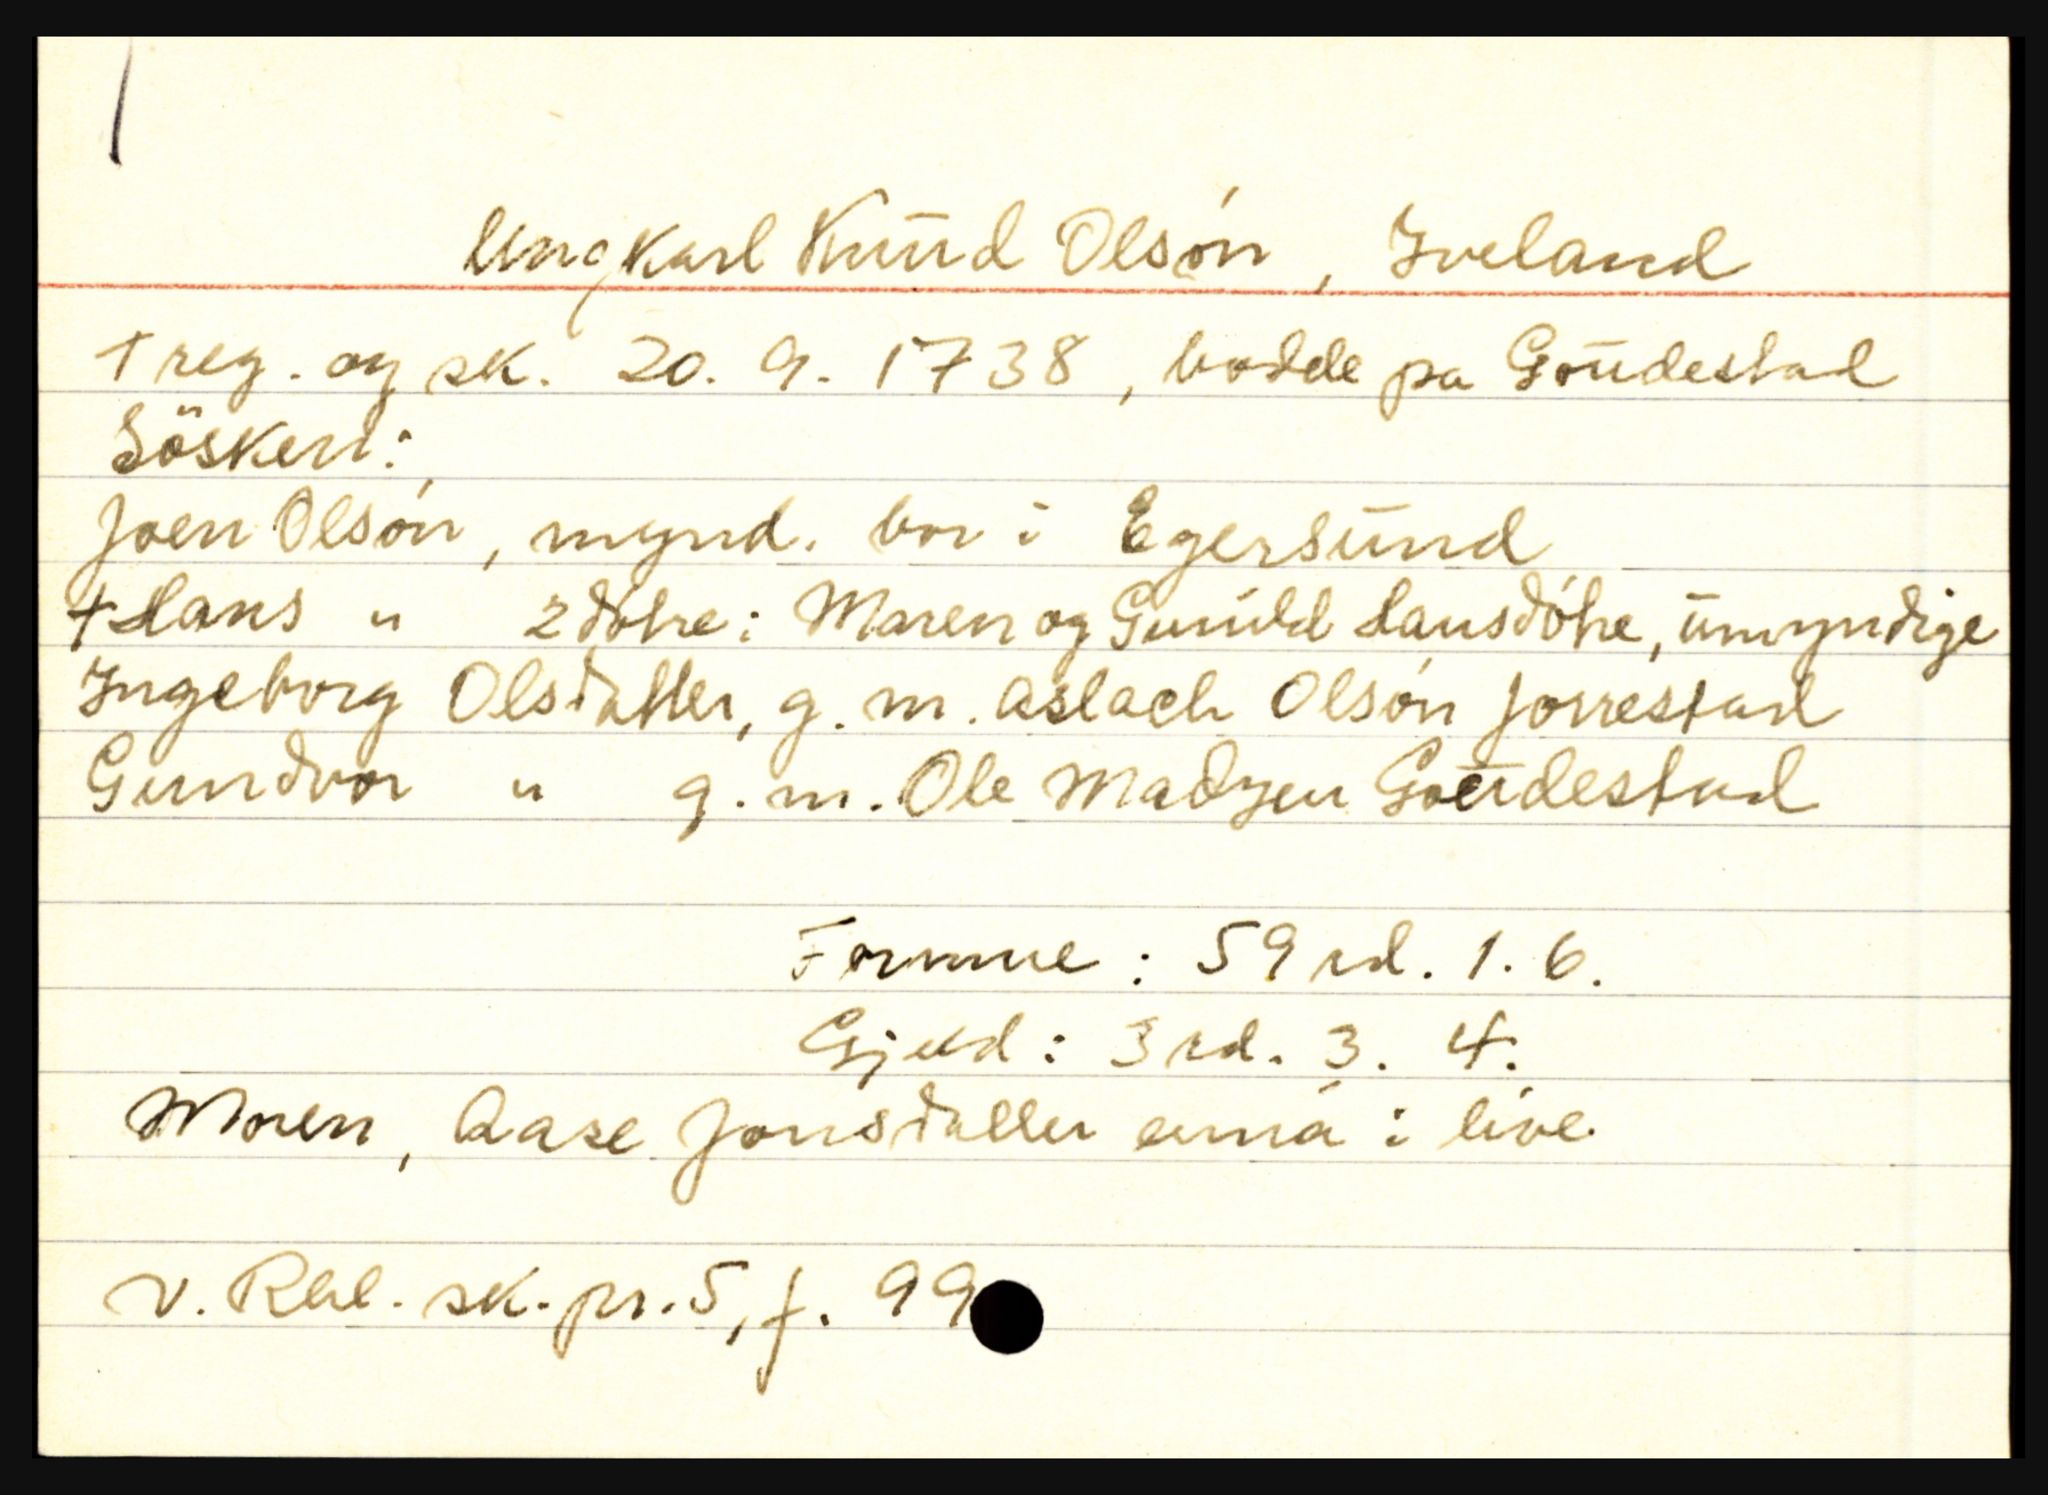 Ungkarl Knūd Olsón, Iveland
† reg. og sk. 20. 9. 1738, bodde pa Goūdestad
Sösken:
Joen Olsón, mynd. bor i Egersūnd
† Hans " 2 døtre: Maren og Gunild Hansdótre, ūmyndige
Ingeborg Olsdatter, g. m. Aslach Olsón Jorrestad
Gundvor " g. m. Ole Madzen Goūdestad
Formue: 59 rd. 1. 6.
Gjeld: 3 rd. 3. 4.
Moren, Aase Jonsdatter enná i live
V. Rbl. sk. pr. 5, f. 99